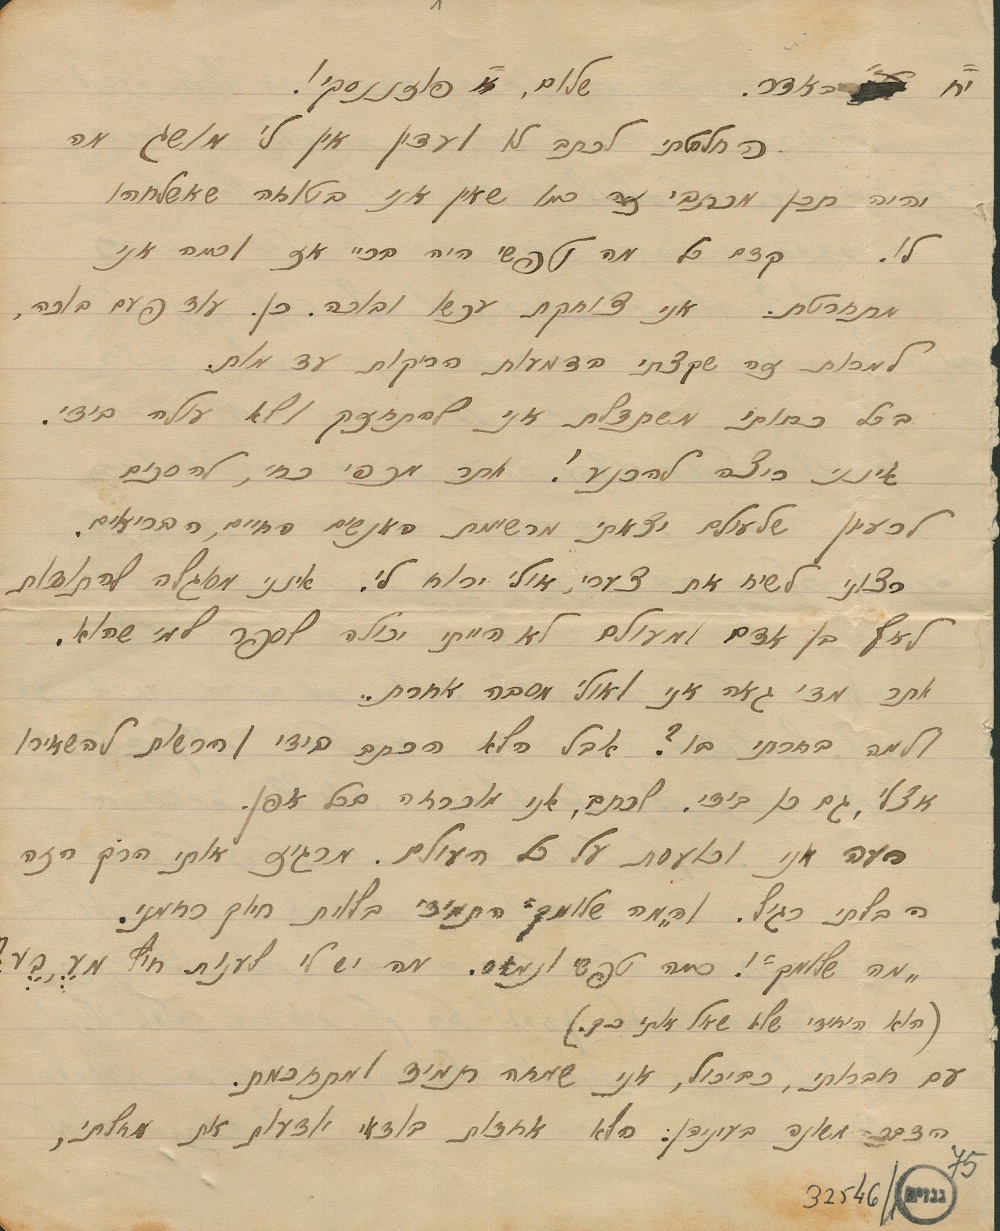 י"ח באדר. שלום, פוזננסקי!
החלטתי לכתב לו ועדין אין לי מושג מה
יהיה תכן מכתבי זה כמו שאין אני בטוחה שאשלחהו
לו. קדם כל מה טפשי היה בכיי אז וכמה אני
מתחרטת. אני צוחקת עכשו ובוכה. כן. עוד פעם בוכה,
למרות זה שקצתי בדמעות הריקות עד מות.
בכל כחותי משתדלת אני להתחזק ולא עולה בידי.
אינני רוצה להכנע! יותר מכפי כחי, להסכים
לרעיון שלעולם יצאתי מרשימת האנשים החיים, הבריאים.
רצוני לשיח את צערי, אולי ירוח לי. אינני מסגלה להתודות
לאף בן אדם ומעולם לא הייתי יכולה לספר למי שהוא.
יותר מדי גאה אני ואולי מסבה אחרת..
ולמה בחרתי בו? אבל הלא הכתב בידי והרשות להשאירו
אצלי, גם כן בידי. לכתב, אני מוכרחה בכל אפן.
רעה אני וכועסת על כל העולם. מרגיז אותי הרק הזה
הבלתי רגיל. וה"מה שלומך" התמידי בלוית חיוך רחמני.
"מה שלומך"! כמה טפשי ונמאס. מה יש לי לענות חוץ
(הוא היחידי שלא שאל אותי כך.)
עם חברותי, כביכול, אני שמחה תמיד ומתחכמת.
הדבר משונה בעיניהן: הלא אחדות בודאי יודעות את מחלתי,
75
32546/1
גנזים